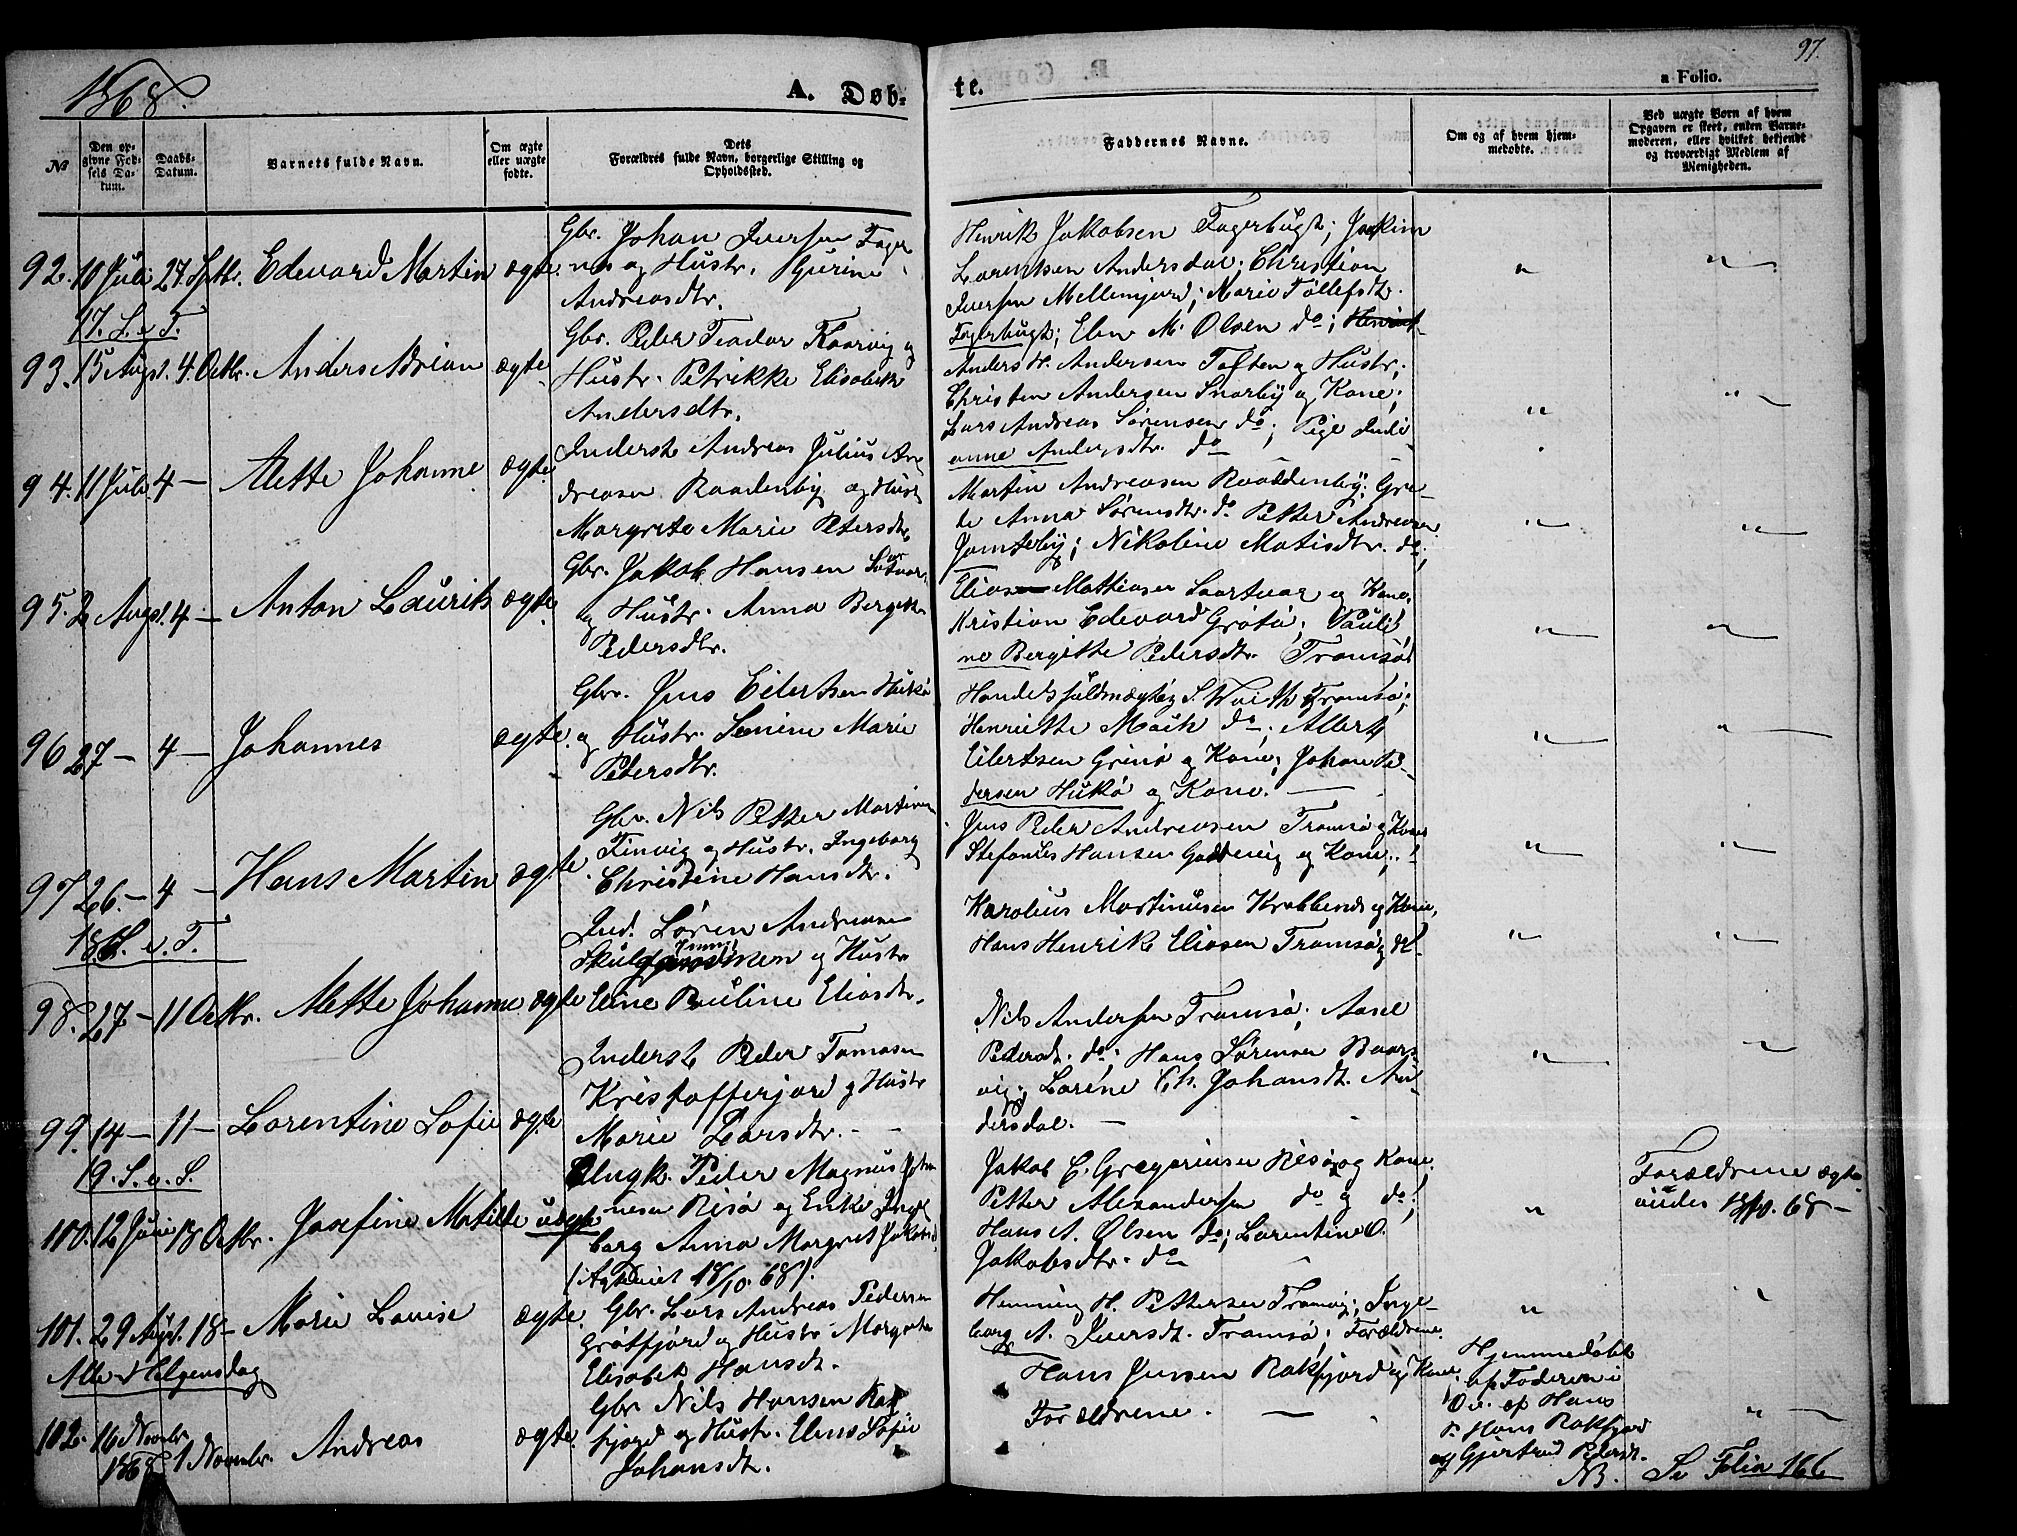 1868.
A. Døb-
te.
a Folio.
97.
No
Den op-
givne Fød-
sels Da-
tum.
Daabs-
Datum.
Barnets fulde Navn.
Om ægte
eller uægte
fødte.
Dets
Forældres fulde Navn, borgerlige Stilling og
Opholdssted.
Faddernes Navne.
Om og af hvem hjem-
medøbte.
Ved uægte Børn af hvem
Opgaven er skeet, enten Barne-
moderen, eller hvilket bekjendt
og troværdigt Medlem af
Menigheden.
92. 10 Juli 27. Septbr. Edevard Martin ægte.
Gbr. Johan Iversen Fager
nes og Hustr. Gurine
Andreasdtr.
Henrik Jakobsen Fagerbugt; Joakim
Lorentsen Andersdal; Christian
Iversen Mellemjord; Marie Tollefsdtr.
Fagerbugt; Elen M. Olsen do;
17. S. e. T.
93. 15 Augst. 4. Octbr. Anders Adrian ægte
Gbr. Peder Teodor Kaarvig og
Hustr. Petrikke Elisabeth
Andersdtr.
Anders H. Andersen Toften og Hustr;
Christen Andersen Snarby og Kone;
Lars Andreas Sørensen do; Pige Indi-
anne Andersdtr. do
94. 11 Juli 4 — Mette Johanne ægte
Inderst Andreas Julius An-
dreasen Raadenby og Hust
Margrete Marie Petersdtr
Martin Andreasen Raaddenby; Gre-
te Anna Sørensdtr. do Petter Andreasen
Jamteby; Nikoline Matisdtr. do;
95. 2 Augst. 4 — Anton Laurits ægte
Gbr. Jakob Hansen
og Hustr. Anna Bergitte
Pedersdtr.
Elias Mathiasen Saartvar og Kone,
Kristian Edevard Grøtø; Pauli-
ne Bergitte Pedersdtr. Tromsø
96 27 — 4 — Johannes ægte.
Gbr. Jens Eilertsen Hukø
og Hustr. Senine Marie
Petersdtr.
Handelsfuldmægtig S. Tromsø;
Henriette Mack do; Albert
Eilertsen Grinø og Kone; Johan Pe-
dersen Hukø og Kone. —
97 26. — 4 — Hans Martin ægte
Gbr. Nils Petter Martinsen
Finvig og Hustr. Ingeborg
Christine Hansdtr.
Jens Peder Andreasen Tromsø og Kone
Stefanus Hansen og Kone;
18 S. e. T.
98. 27 — 11 Octbr. Mette Johanne ægte
Ind. Søren Andreasen
og Hustr
Eline Pauline Eliasdtr.
Karolius Martinusen Krabbenes og Kone,
Hans Henrik Eliasen Tromsø og do!
99. 14 — 11 — Lorentine Sofie ægte
Inderst Peder Tomasen
Kristofferjord og Hustr
Marie Larsdtr. —
Nils Andersen Tromsø; Aasel
Pedersdt. do; Hans Sørensen Baars-
vig; Lorene Ch. Johansdt. An-
dersdal. —
19. S. e. S.
100. 12 Juni 18 Octbr. Josefine Matilde uægte
Ungk. Peder Magnus Johan
nesen Risø og Enke Inge
borg Anna Margret Jakobsd.
(Ægteviet 18/10. 68).
Jakob E. Gregoriusen Risø og Kone.
Petter Alexandersen do og do!
Hans A. Olsen do; Lorentine O.
Jakobsdtr. do
Forældrene ægte-
viedes 18/10. 68 —
101. 29 Augst. 18 — Marie Lovise ægte
Gbr. Lars Andreas Pedersen
Grøtfjord og Hustr. Margrete
Elisabet Hansdt.
Henning H. Pettersen Tromvig; Inge-
borg A. Iversdt. Tromsø; Forældrene.
Alle Helgensdag
102. 16 Novbr. 1868 1 Novmbr. Andreas ægte.
Gbr. Nils Hansen Rak
fjord og Hustr. Elens Sofie
Johansdt.
Hans Jensen Rakfjord og Kone
Forældrene. —
Hjemmedøbt
af Faderen i
Ov. af Hans
P. Hans Rakfjord
og Gjertrud Pedersdt.
NB. Se Folio 166